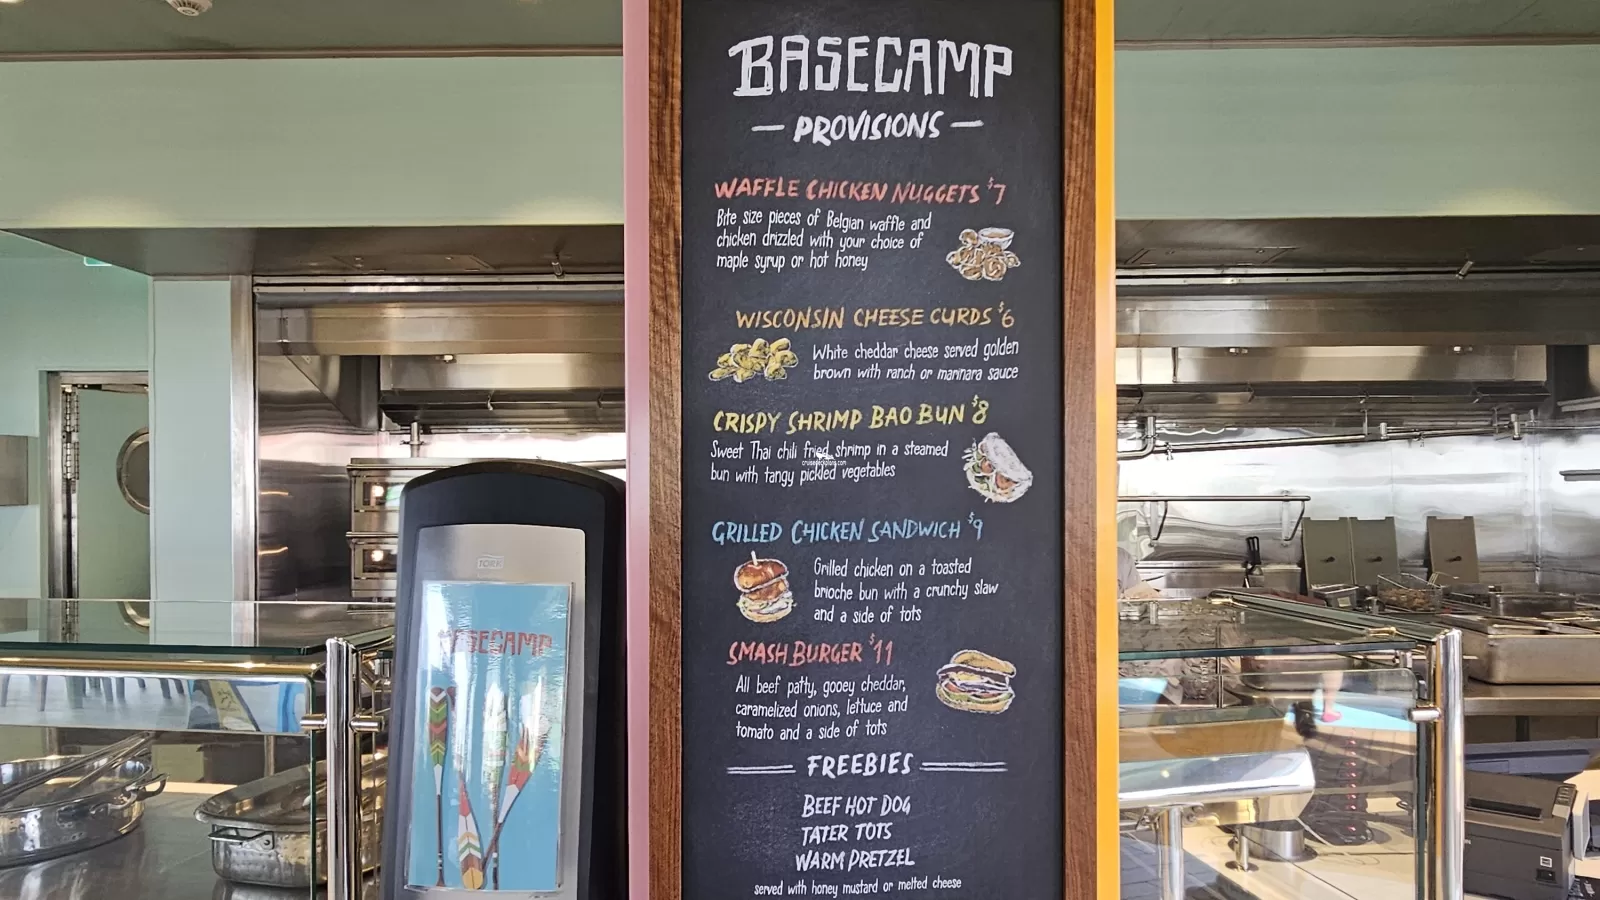 BASECAMP
PROVISIONS
WAFFLE CHICKEN NUGGETS $7
Bite size pieces of Belgian waffle and
chicken drizzled with your choice of
maple syrup or hot honey
WISCONSIN CHEESE CURDS $6
White cheddar cheese served golden
brown with ranch or marinara sauce
CRISPY SHRIMP BAO BUN $8
Sweet Thai chili fried shrimp in a steamed
bun with tangy pickled vegetables
GRILLED CHICKEN SANDWICH $9
Grilled chicken on a toasted
brioche bun with a crunchy slaw
and a side of tots
SMASH BURGER $11
All beef patty, gooey cheddar,
caramelized onions, lettuce and
tomato and a side of tots
FREEBIES
BEEF HOT DOG
TATER TOTS
WARM PRETZEL
served with honey mustard or melted cheese
TORK
BASECAMP